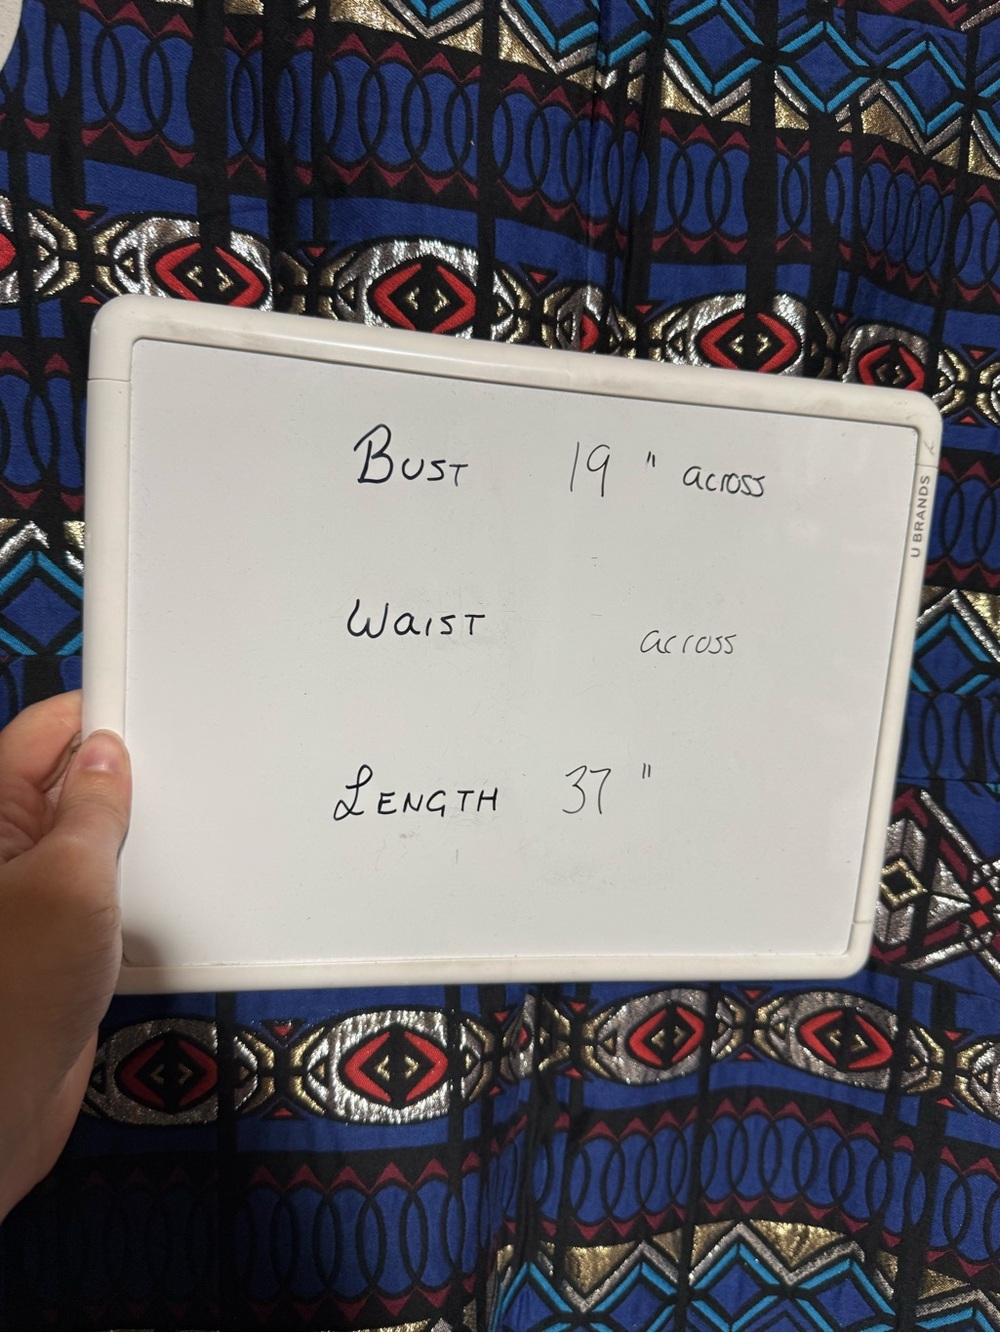 BUST 19 " across
WAIST across
LENGTH 37 "
U BRANDS